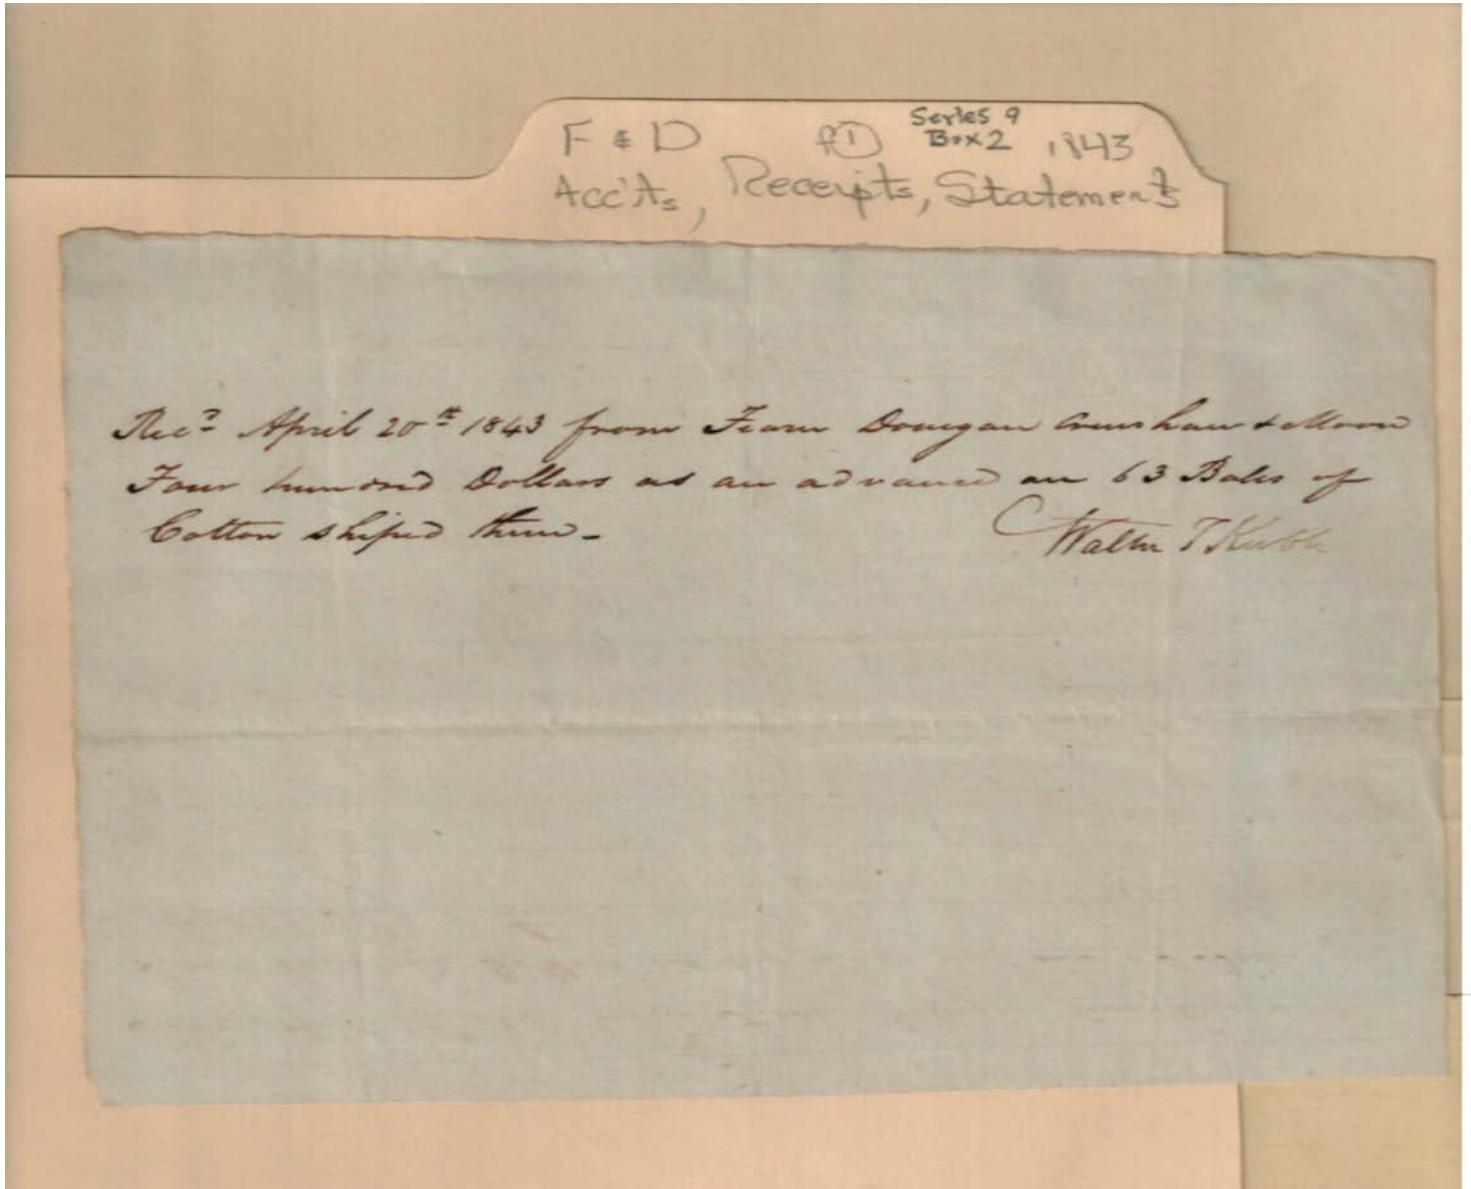 F & D f① Series 9 Box 2 1843
Acc'ts, Receipts, Statements
Rec.d April 20th 1843 from Fearn Donegan Crenshaw & Moore
Four hundred Dollars as an advance on 63 Bales of
Cotton shiped them -
Walter T